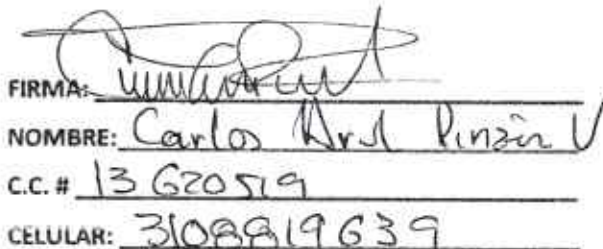 FIRMA:
NOMBRE: Carlos Pinzón V
C.C. # 13 620 519
CELULAR: 3108819639